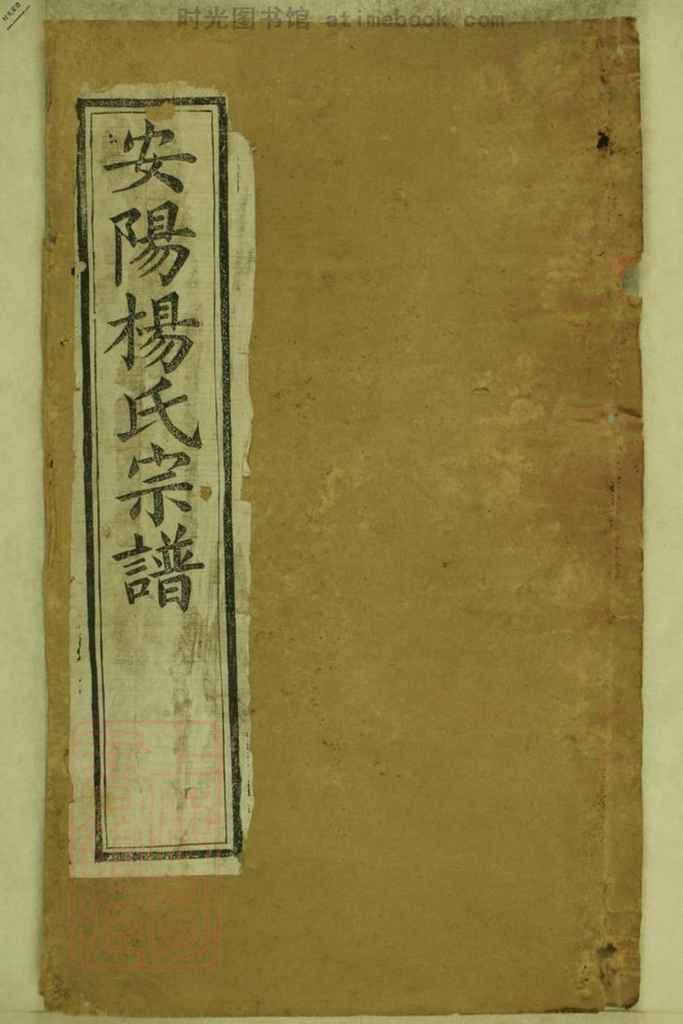 时光图书馆 atimebook.com
安陽楊氏宗譜